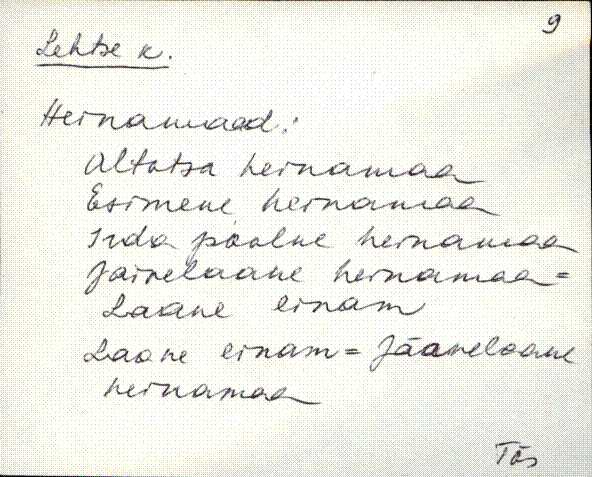 9
Lehtse k.
Heinamaad:
Altotsa heinamaa
Esimene heinamaa
Ida poolne heinamaa
Jäinelaane heinamaa =
Laane einam
Laane einam = Jäänelaane
heinamaa